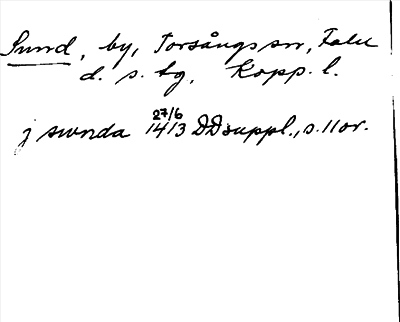 Sund, by, Torsångs sn, Falu
d. s. tg, Kopp. l.
27/6
j swnda 1413 DD suppl., s. 11 or.